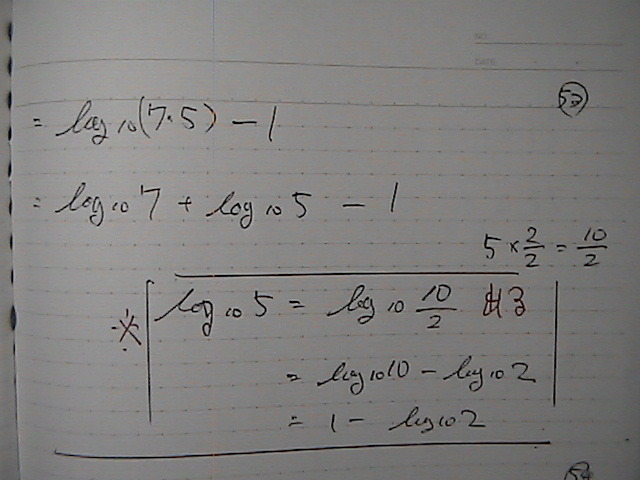 NO.
DATE
52
= log₁₀(7・5) − 1
= log₁₀7 + log₁₀5 − 1
5 × 2/2 = 10/2
※ log₁₀5 = log₁₀ 10/2
= log₁₀10 − log₁₀2
= 1 − log₁₀2